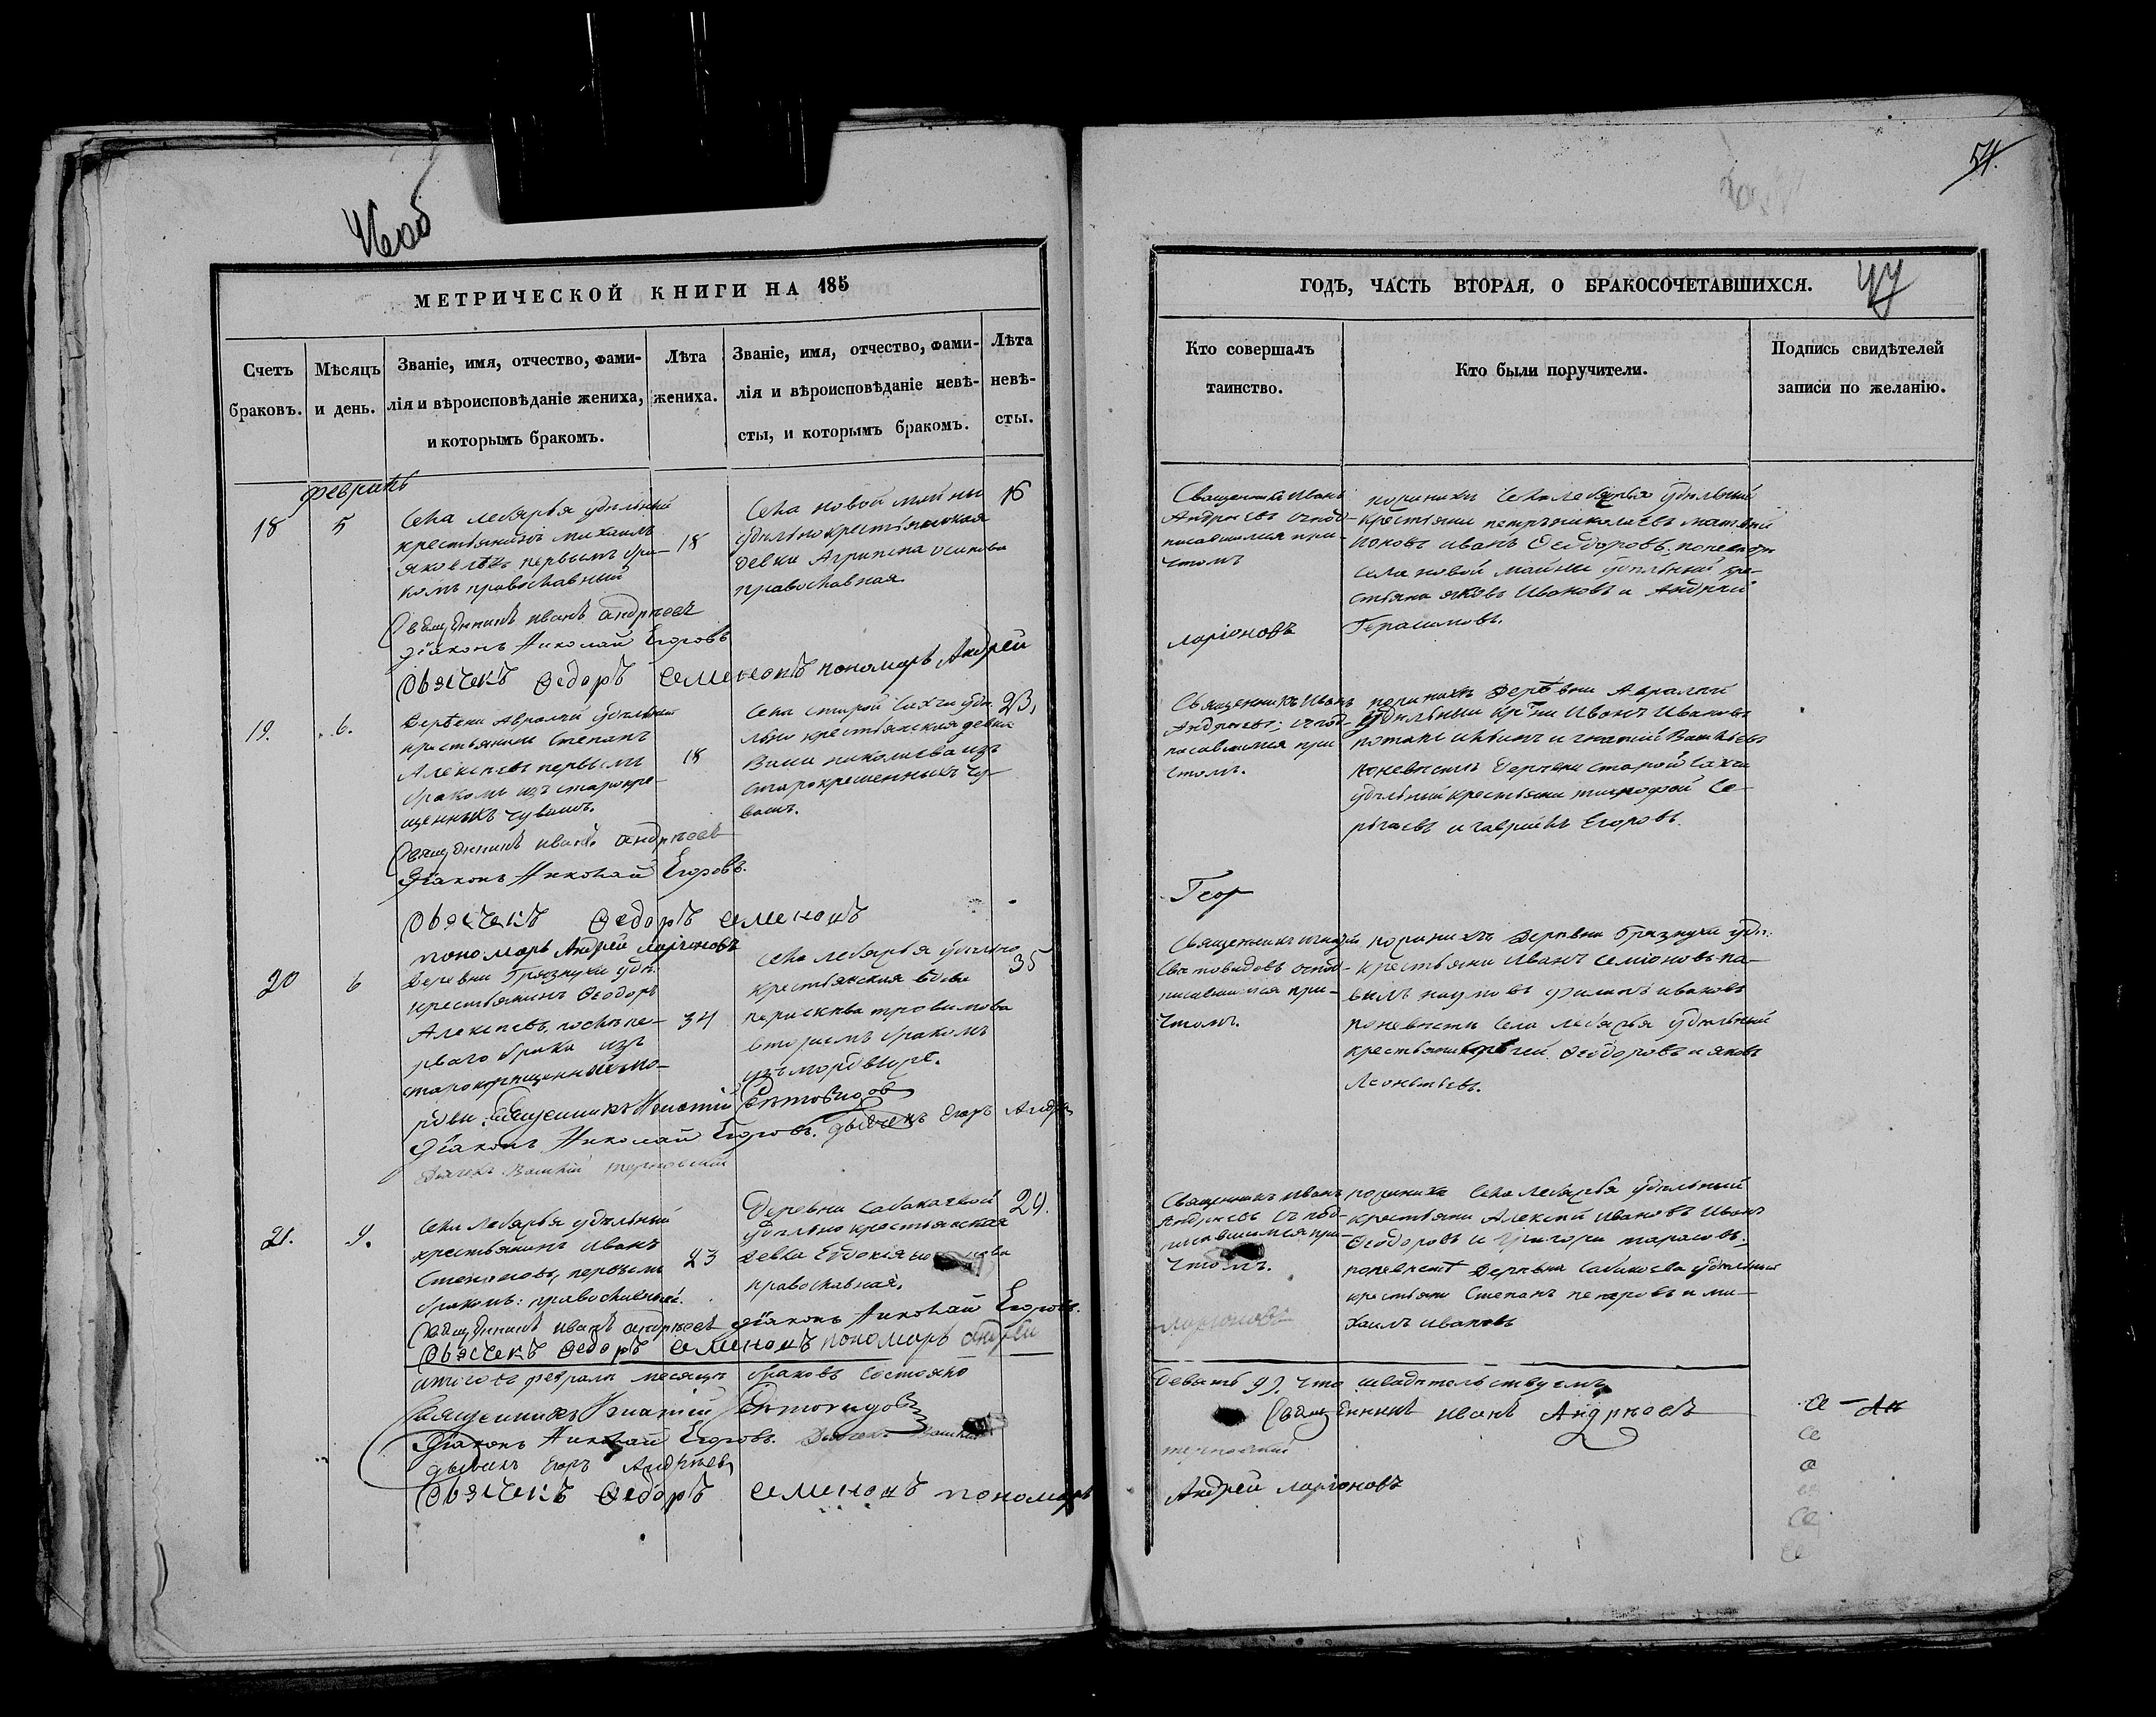 46об
54.
МЕТРИЧЕСКОЙ КНИГИ НА 185
Счетъ браковъ.
Мѣсяцъ и день.
Званіе, имя, отчество, фами-
лія и вѣроисповѣданіе жениха,
и которымъ бракомъ.
Лѣта
жениха.
Званіе, имя, отчество, фами-
лія и вѣроисповѣданіе невѣ-
сты, и которымъ бракомъ.
Лѣта
невѣ-
сты.
февраль
18
5
Села лебяжья удѣльный
крестьянинъ михаилъ
яковлевъ первымъ бра-
комъ православный
18
Села новой майны
удѣльнокрестьянская
девка Агрипена осипова
православная
16
Священникъ иванъ андрѣевъ
Діаконъ Николай Егоровъ
Дьячекъ Ѳедоръ Семеновъ пономарь Андрей
19.
6.
Деревни Авралей удѣльный
крестьянинъ Степанъ
Алексѣевъ первымъ
бракомъ изъ старокре-
щенныхъ чувашъ.
18
Села старой Сахчи удѣ-
льно крестьянская девка
николаева изъ
старокрещенныхъ чу-
вашъ.
23,
Священникъ иванъ андрѣевъ
Діаконъ Николай Егоровъ.
Дьячекъ Ѳедоръ Семеновъ
пономарь Андрей ларіоновъ
20
6
Деревни Грязнухи удѣ.
крестьянинъ Ѳеодоръ
Алексѣевъ, послѣ пе-
рваго брака изъ
старокрещенныхъ мо-
рдвы
34
Села лебяжья удѣльно
крестьянская вдова
трофимова
вторымъ бракомъ
изъ мордвы
35
Священникъ Игнатій
Діаконъ Николай Егоровъ. дьячекъ Егоръ Андре
Дьячекъ Василій терновскій
21.
9.
Села лебяжья удѣльный
крестьянинъ Иванъ
Степановъ, первымъ
бракомъ: православный.
23
Деревни Сабакаевой
удѣльно крестьянская
девка Евдокія
православная.
29.
Священникъ иванъ андрѣевъ діаконъ Николай Егоровъ.
Дьячекъ Ѳедоръ Семеновъ пономарь Андрей
итого въ февралѣ месяцѣ браковъ состояло
Священникъ Игнатій
Діаконъ Николай Егоровъ. Дьячекъ Василій
дьячекъ Егоръ Андрѣев
Дьячекъ Ѳедоръ Семеновъ пономарь
ГОДЪ, ЧАСТЬ ВТОРАЯ, О БРАКОСОЧЕТАВШИХСЯ.
47
Кто совершалъ
таинство.
Кто были поручители.
Подпись свидѣтелей
записи по желанію.
Священникъ Иванъ
Андрѣевъ съ под-
писавшимся при-
чтомъ
ларіоновъ
по женихѣ Села лебяжья удѣльный
крестьяни петръ николаевъ матвей
поповъ иванъ Ѳеодоровъ, по невѣсти
села новой майны удѣльный кре-
стьяна яковъ Ивановъ и Андрей
Герасимовъ.
Священникъ Иванъ
Андрѣевъ; съ под-
писавшимся при
чтомъ.
Геор
по женихѣ Деревни Авралей
удѣльный кр-ни Иванъ Ивановъ
потапъ ильинъ и игнатій Васильевъ
по невѣсти Деревни старой Сахчи
удѣльный крестьяни тимофей Се-
ргѣевъ и гаврилъ Егоровъ
Священникъ игнатій
съ под-
писавшимся при-
чтомъ.
по женихѣ Деревни Грязнухи удѣ:
крестьяни Иванъ Семіоновъ па-
велъ наумовъ филипъ ивановъ
по невѣсти Села лебяжья удѣльный
крестьяни сергей Ѳеодоровъ и яковъ
Леонтьевъ.
Священникъ Иванъ
Андрѣевъ съ под-
писавшимся при-
чтомъ.
ларіоновъ
по женихѣ Села лебяжья удѣльный
крестьяни Алексей Ивановъ Иванъ
Ѳеодоровъ и Григори тарасовъ.
по невѣсте Деревни Сабакаева удѣльный
крестьяни Степанъ петровъ и ми-
хаилъ ивановъ
девять 9). что свидѣтельствуемъ
Священникъ иванъ Андрѣевъ
терновскій
Андрей ларіоновъ